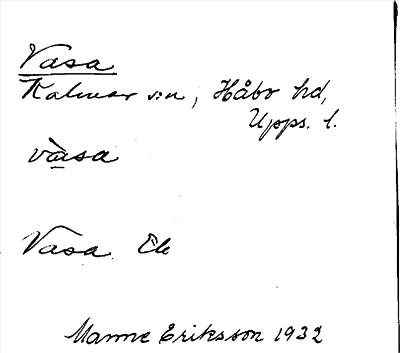 Vasa
Kalmar sn, Håbo hd,
Upps. l.
vàsa
Vasa Ek
Manne Eriksson 1932